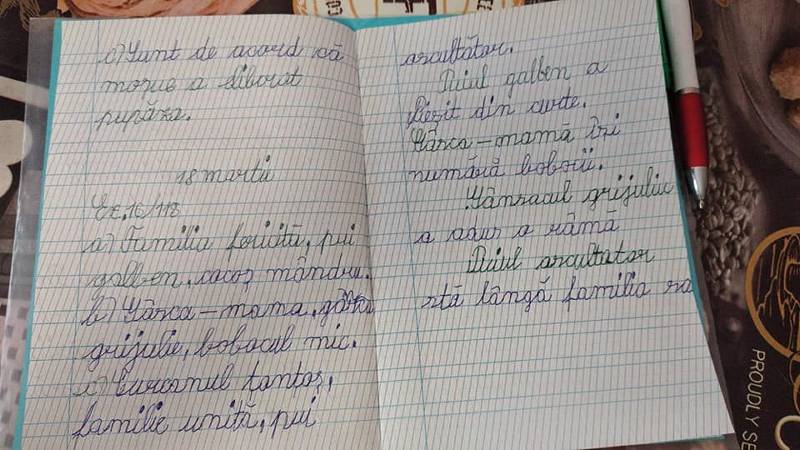 c) Sunt de acord că
moșul a eliberat
pupăza.
18 martie
Ex. 16/118
a) Familia fericită, pui
galben, cocoș mândru.
b) Gâsca-mama, gâsca
grijulie, bobocul mic.
c) Curcanul fantoș,
familie unită, pui
ascultător.
Puiul galben a
ieșit din curte.
Gâsca-mamă își
numără bobocii.
Gânsacul grijuliu
a a o râmă
Puiul ascultator
stă lângă familia sa
PROUDLY SE